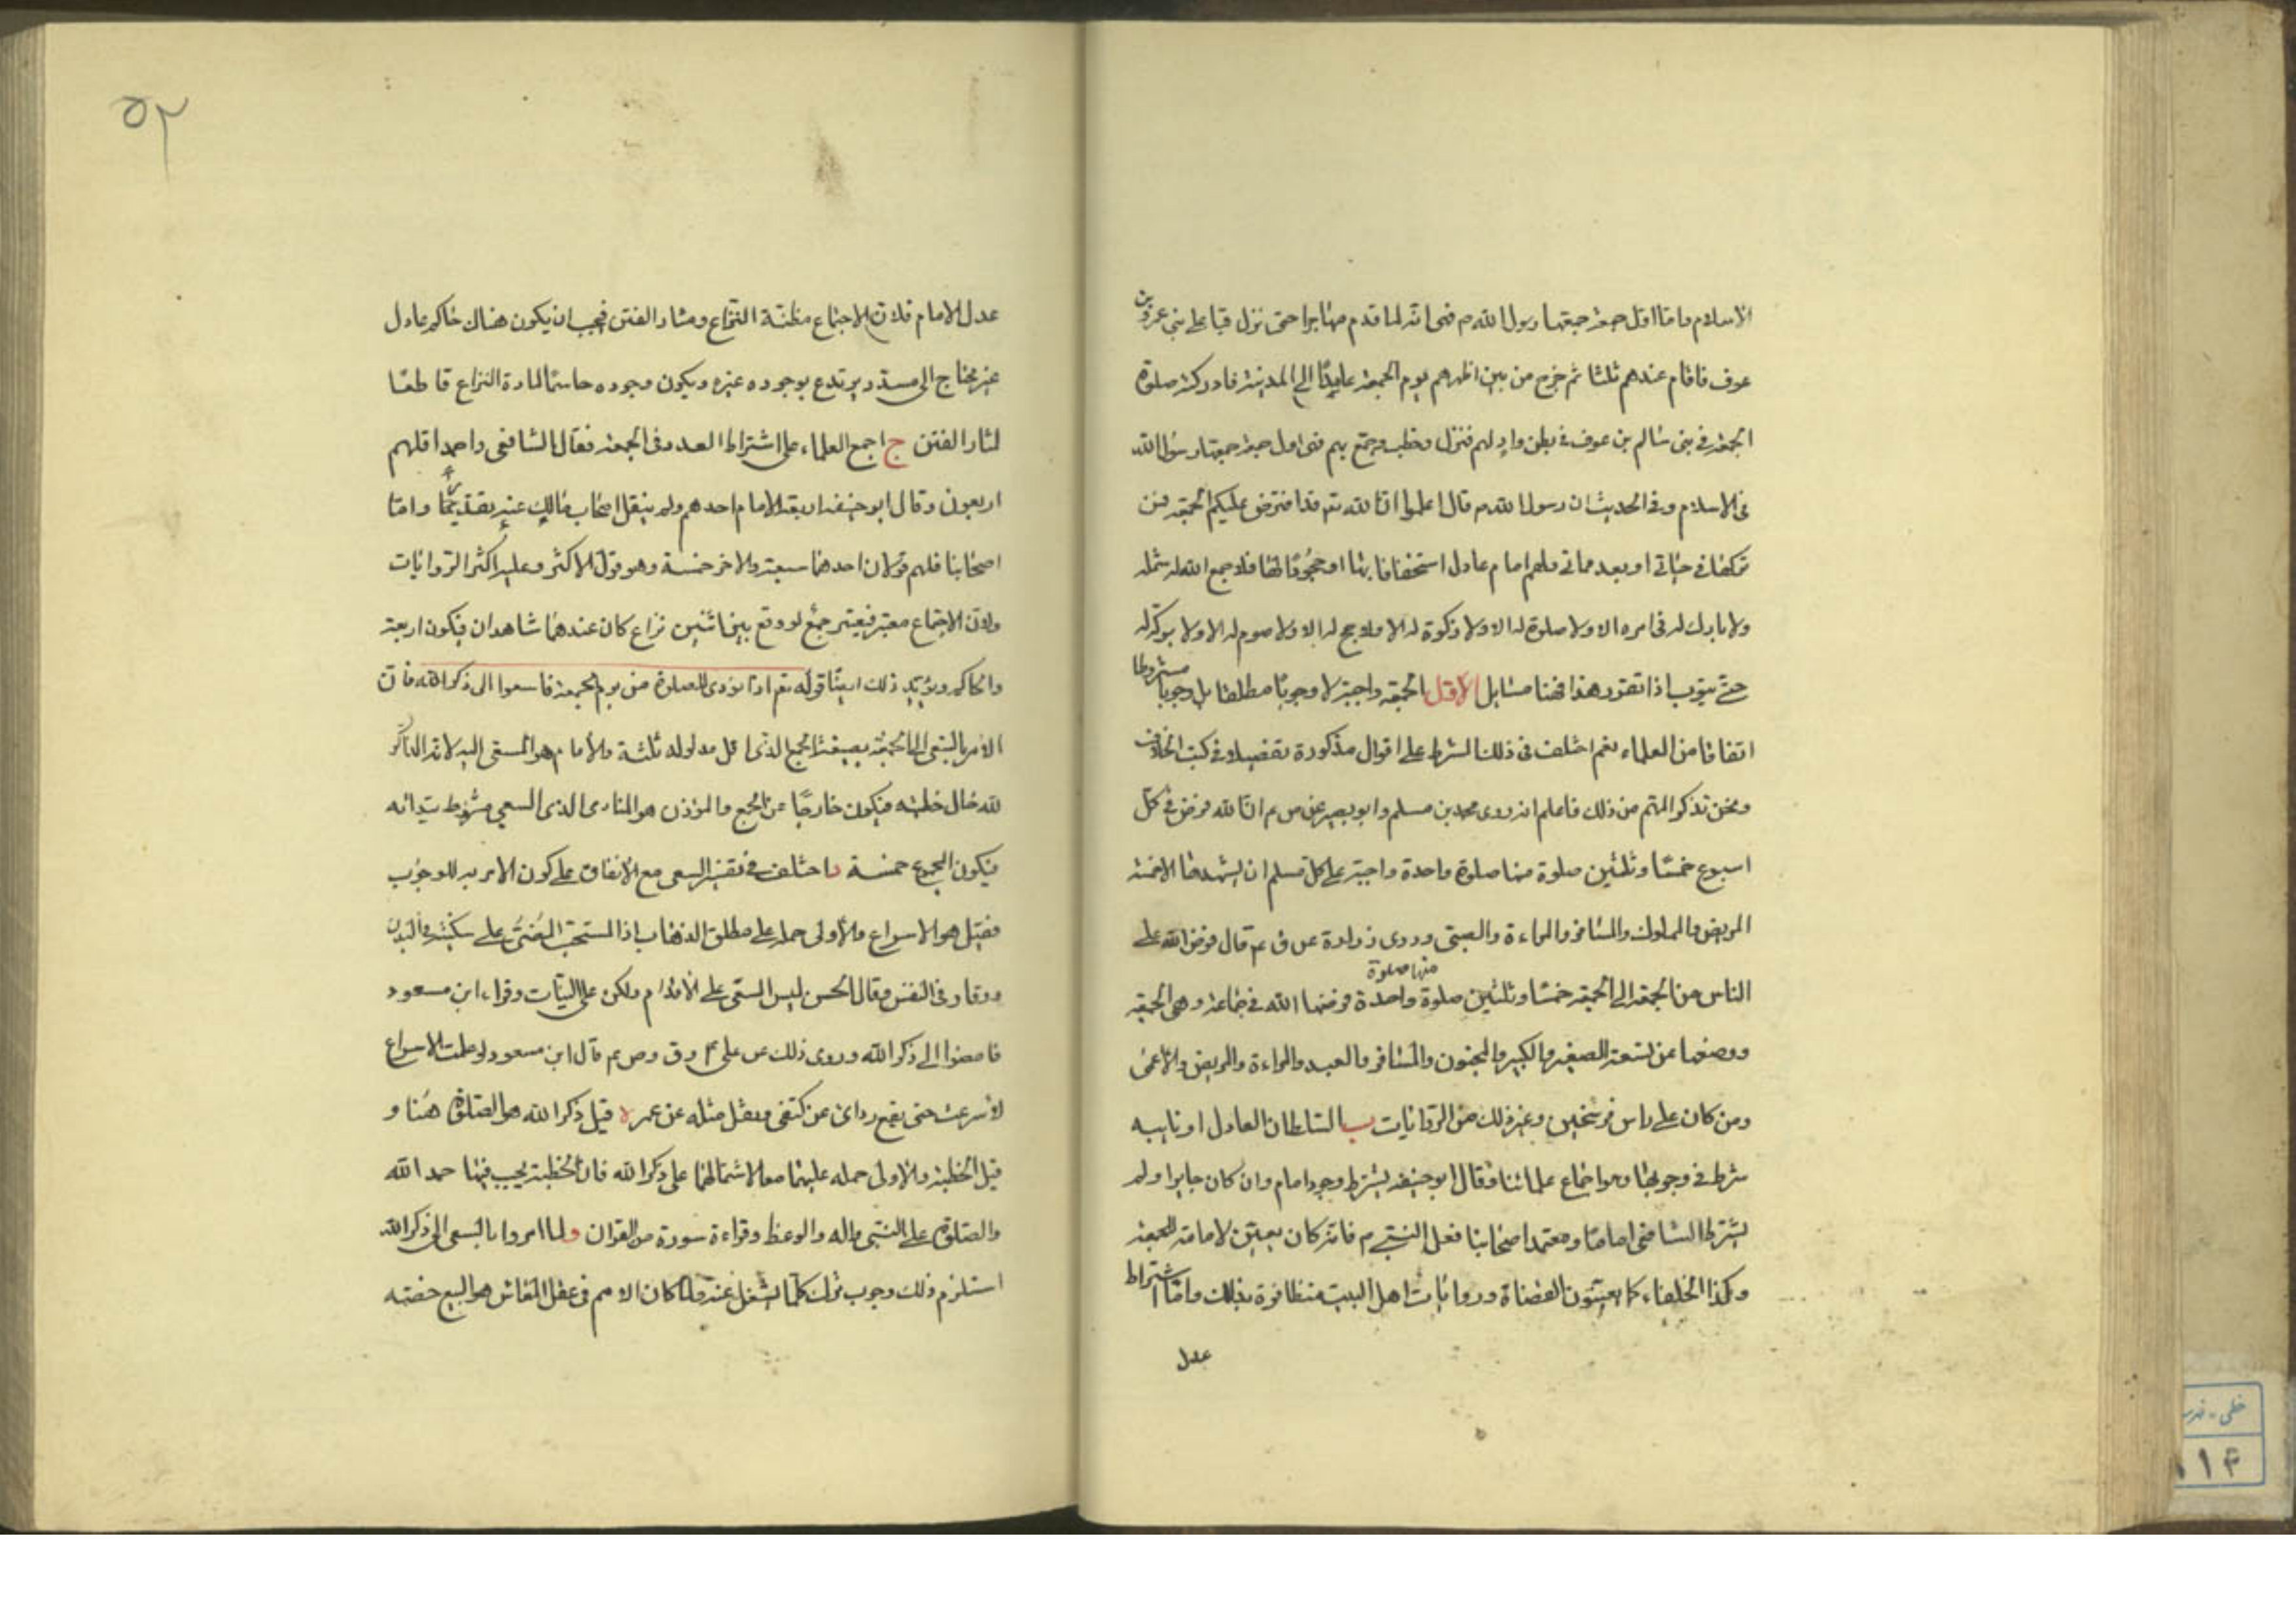 الاسلام واما اول جمعة جمعها رسول الله م فهى انه لما قدم مهاجرا حتى نزل قبا على بنى عمرو بن
عوف فاقام عندهم ثلثا ثم خرج من بين اظهرهم يوم الجمعة عامدًا الى المدينة فادركته صلوة
الجمعة فى بنى سالم بن عوف فى بطن واد لهم فنزل وخطب وجمع بهم فهى اول جمعة جمعها رسول الله
فى الاسلام وفى الحديث ان رسول الله م قال اعلموا ان الله تع قد افترض عليكم الجمعة فمن
تركها فى حياتى او بعد مماتى ولهم امام عادل استخفافا بها او جحودًا لها فلا جمع الله له شمله
ولا بارك له فى امره الا ولا صلوة له الا ولا زكوة له الا ولا حج له الا ولا صوم له الا ولا بركة له
حتى يتوب اذا تقرر هذا فهنا مسايل الاول الجمعة واجبة لا وجوبًا مطلقا بل وجوبا مشروطا
اتفاقا من العلماء نعم اختلف فى ذلك الشرط على اقوال مذكورة تفصيلا فى كتب الخلاف
ونحن نذكر المهم من ذلك فاعلم انه روى محمد بن مسلم وابو بصير عن ص ع م ان الله فرض فى كل
اسبوع خمسًا وثلثين صلوة منها صلوة واحدة واجبة على كل مسلم ان يشهدها الا خمسة
المريض والمملوك والمسافر والمراءة والصبى وروى زرارة عن ق ع م قال فرض الله على
الناس من الجمعة الى الجمعة خمسًا وثلثين صلوة منها صلوة واحدة فرضها الله فى جماعة وهى الجمعة
ووضعها عن تسعة الصغير والكبير والمجنون والمسافر والعبد والمراءة والمريض والاعمى
ومن كان على راس فرسخين وغير ذلك من الروايات ب السلطان العادل او نايبه
شرط فى وجوبها وهو اجماع علمائنا وقال ابو حنيفه يشترط وجود امام وان كان جايرا ولم
يشترط الشافعى اماما ومعتمد اصحابنا فعل النبى م فانه كان يعين لامامة الجمعة
وكذا الخلفاء كما يعينون القضاة وروايات اهل البيت متظافرة بذلك واما اشتراط
عدل
٥٢
عدل الامام فلان الاجتماع مظنة النزاع ومثار الفتن فيجب ان يكون هناك حاكم عادل
غير محتاج الى مسدد يرتدع بوجوده غيره ويكون وجوده حاسمًا لمادة النزاع قاطعًا
لثار الفتن ج اجمع العلماء على اشتراط العدد فى الجمعة فقال الشافعى واحمد اقلهم
اربعون وقال ابو حنيفه اربعة الامام احدهم ولم ينقل اصحاب مالك عنه تقديرًا واما
اصحابنا فلهم قولان احدهما سبعة والاخر خمسة وهو قول الاكثر وعليه اكثر الروايات
ولان الاجتماع معتبر فيعتبر جمع لو وقع بين اثنين نزاع كان عندهما شاهدان فيكون اربعة
والحاكم ويؤيد ذلك ايضًا قوله تع اذا نودى للصلوة من يوم الجمعة فاسعوا الى ذكر الله فان
الامر بالسعى الى الجمعة بصيغة الجمع الذى اقل مدلوله ثلثة والامام هو المسعى اليه لانه الذاكر
لله حال خطبته فيكون خارجًا عن الجمع والمؤذن هو المنادى الذى السعى مشروط بندائه
فيكون المجموع خمسة د اختلف فى تفسير السعى مع الاتفاق على كون الامر به للوجوب
فقيل هو الاسراع والاولى حمله على مطلق الذهاب اذ المستحب المضى على سكينة فى البدن
ووقار فى النفس وقال الحسن ليس السعى على الاقدام ولكن على النيات وقراء ابن مسعود
فامضوا الى ذكر الله وروى ذلك عن على ع م وق وص ع م قال ابن مسعود لو علمت الاسراع
لاسرعت حتى يقع ردائى عن كتفى ونقل مثله عن عمر ه قيل ذكر الله هو الصلوة هنا و
قيل الخطبة والاولى حمله عليهما معا لاشتمالهما على ذكر الله فان الخطبة يجب فيها حمد الله
والصلوة على النبى واله والوعظ وقراءة سورة من القران و لما امروا بالسعى الى ذكر الله
استلزم ذلك وجوب ترك كلما يشغل عنه ولما كان الاهم فى عقل المعاش هو البيع خصه